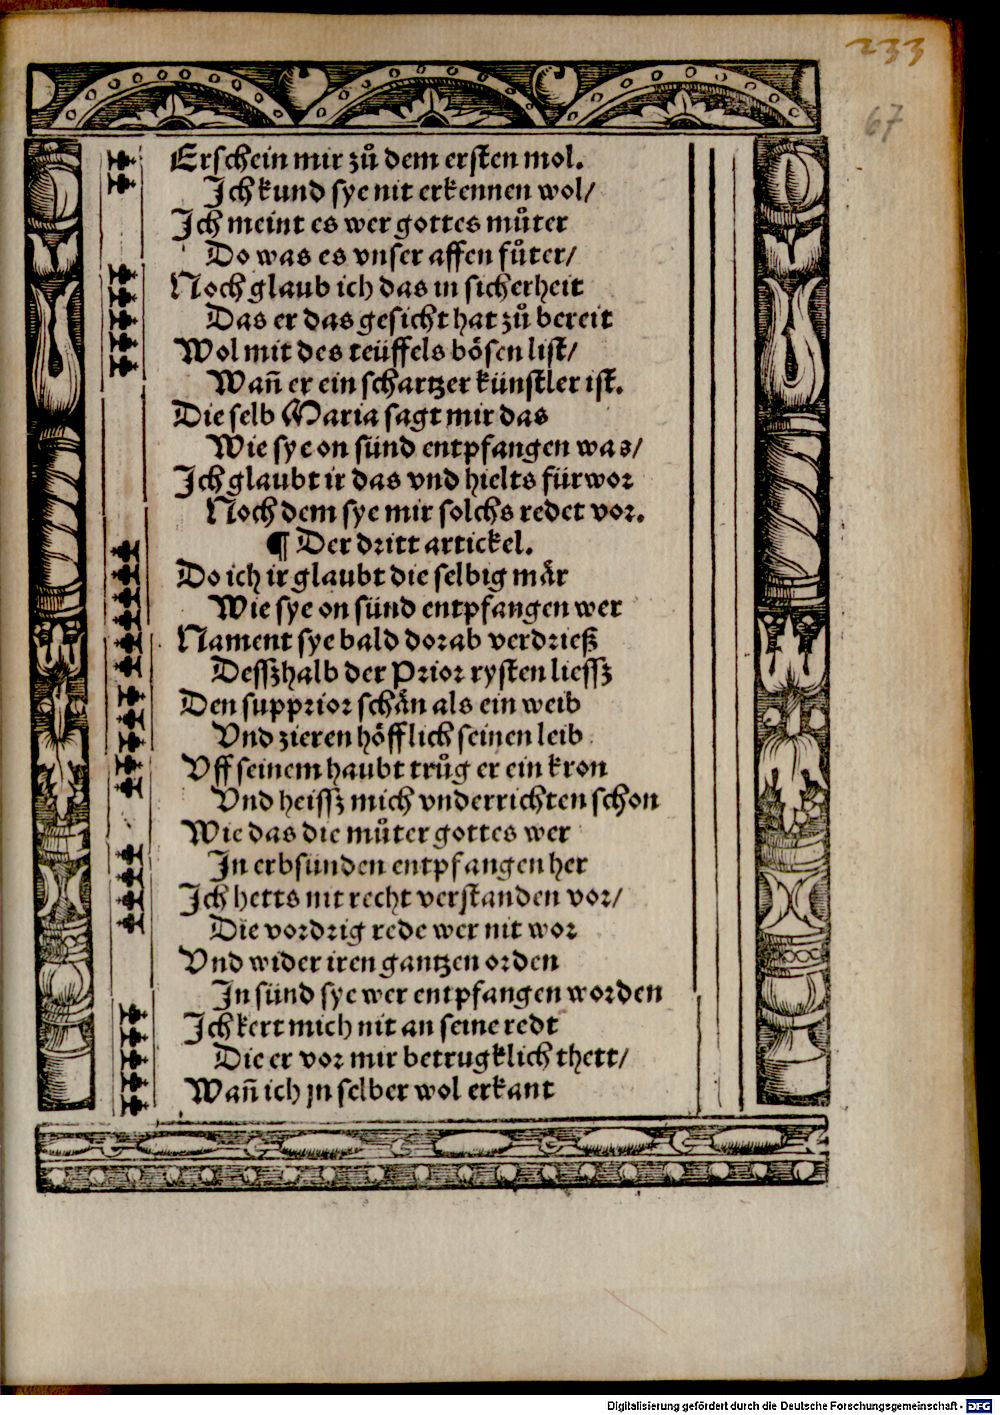 233
67
Erschein mir zů dem ersten mol.
Ich kund sye nit erkennen wol/
Ich meint es wer gottes můter
Do was es vnser affen fůter/
Noch glaub ich das in sicherheit
Das er das gesicht hat zů bereit
Wol mit des teüffels bösen list/
Wañ er ein schartzer künstler ist.
Die selb Maria sagt mir das
Wie sye on sünd entpfangen was/
Ich glaubt ir das vnd hielts für wor
Noch dem sye mir solchs redet vor.
¶ Der dritt artickel.
Do ich ir glaubt die selbig mär
Wie sye on sünd entpfangen wer
Nament sye bald dorab verdrieß
Desszhalb der Prior rysten liessz
Den supprior schän als ein weib
Vnd zieren höfflich seinen leib
Vff seinem haubt trůg er ein kron
Vnd heissz mich vnderrichten schon
Wie das die můter gottes wer
In erbsünden entpfangen her
Ich hetts nit recht verstanden vor/
Die vordrig rede wer nit wor
Vnd wider iren gantzen orden
In sünd sye wer entpfangen worden
Ich kert mich nit an seine redt
Die er vor mir betrugklich thett/
Wañ ich jn selber wol erkant
Digitalisierung gefördert durch die Deutsche Forschungsgemeinschaft - DFG